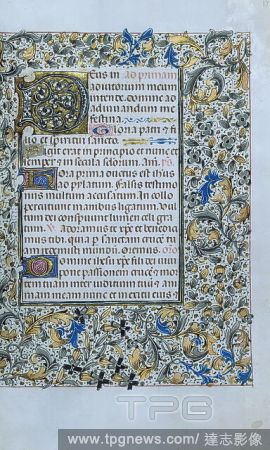 Deus in ad primam
adiutorium meum
intende. domine ad
adiuuandum me
festina.
Gloria patri & fi
lio et spiritui sancto.
Sicut erat in principio et nunc et
semper & in secula seculorum. Am. 
Hora prima ductus est ihesus
ad pylatum. Falsis testimo
niis multum accusatum. In collo
percutiunt manibus ligatum. Vul
tum dei conspuunt lumen celi gra
tum. V. Adoramus te xpe et benedici
mus tibi. quia per sanctam crucem tu
am redemisti mundum. Oremus. Oro
Domine ihesu xpe fili dei uiui
pone passionem crucem & mor
tem tuam inter iuditium tuum & ani
mam meam nunc et in exitu eius &
TPG
www.tpgnews.com/達志影像